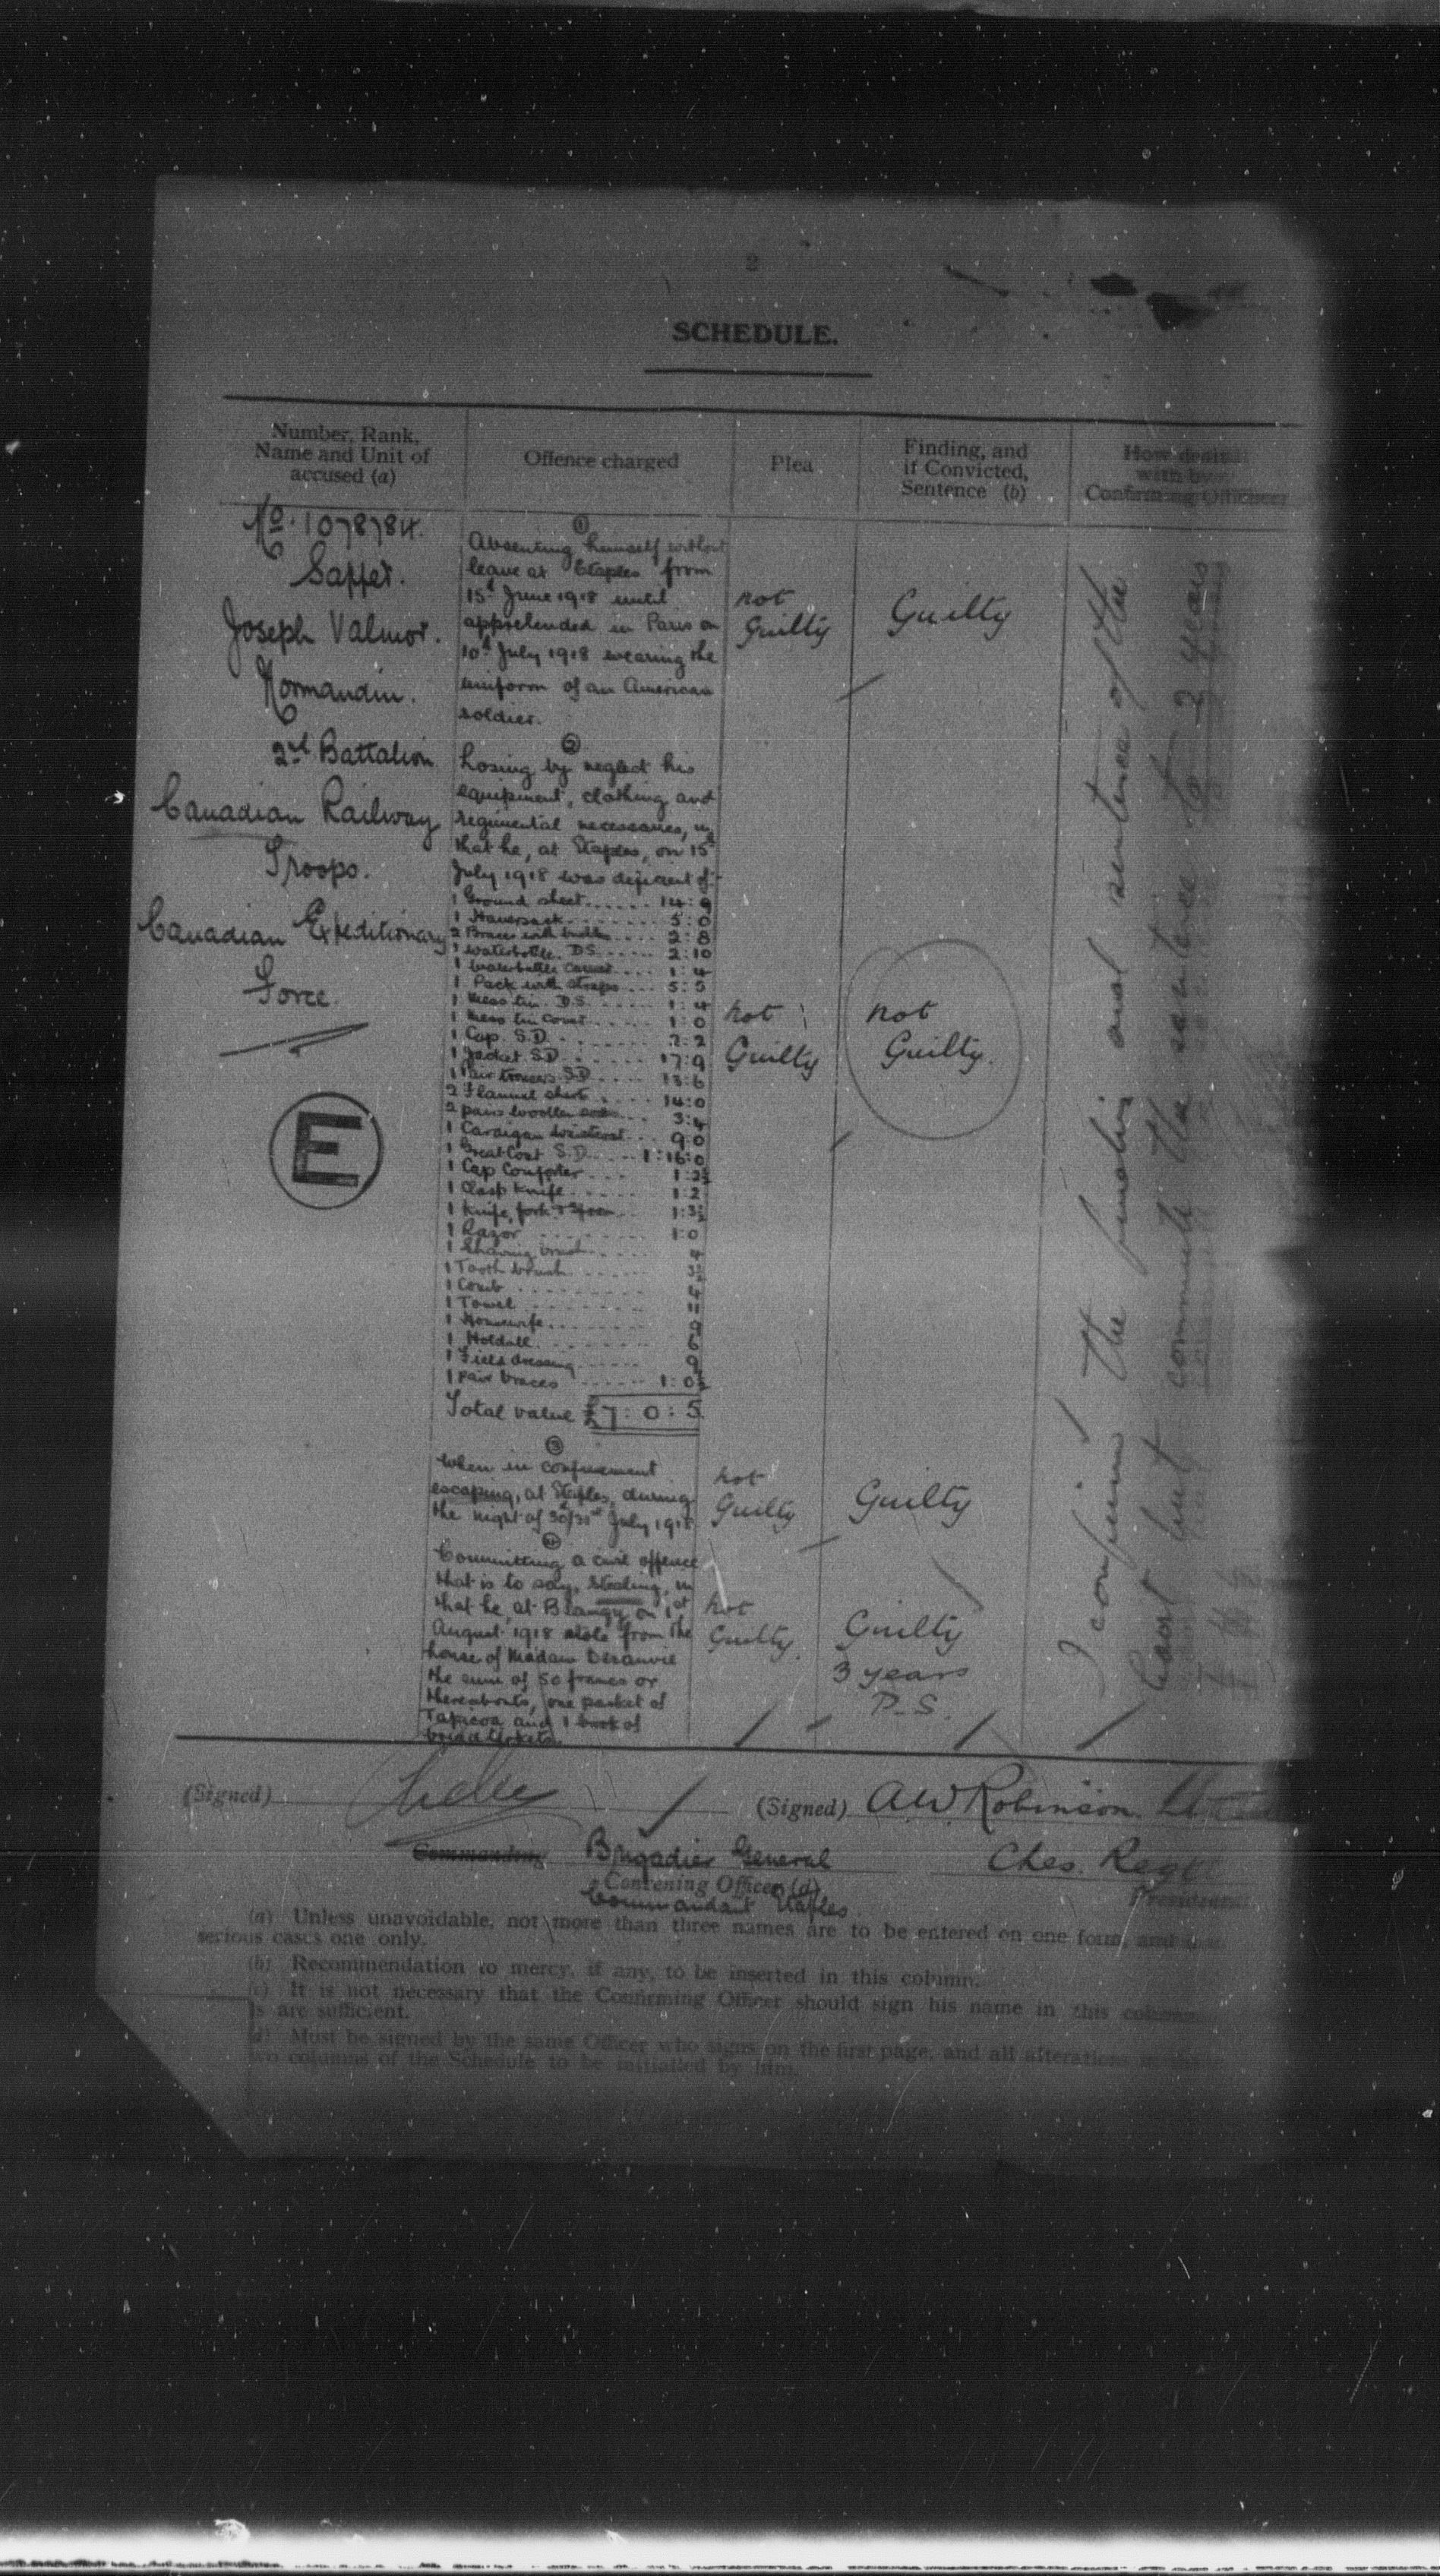 2
SCHEDULE.
Number, Rank,
Name and Unit of
accused (a)
Offence charged
Plea
Finding, and
if Convicted,
Sentence (b)
How dealt
with by
Confirming Officer
No. 1078784.
Sapper.
Joseph Valmor.
Normandin.
2nd Battalion
Canadian Railway
Troops.
Canadian Expeditionary
Force.
E
①
Absenting himself without
leave at Etaples from
15th June 1918 until
apprehended in Paris on
10th July 1918 wearing the
uniform of an American
soldier.
not
Guilty
Guilty
②
Losing by neglect his
equipment, clothing and
regimental necessaries, in
that he, at Etaples, on 15th
July 1918 was deficient of:-
1 Ground sheet...... 14:9
1 Haversack........ 5:0
2 Braces with buckles.... 2:8
1 waterbottle. D.S...... 2:10
1 waterbottle carrier.... 1:4
1 Pack with straps... 5:5
1 Mess tin. D.S...... 1:4
1 Mess tin cover...... 1:0
1 Cap. S.D........ 2:2
1 Jacket S.D...... 17:9
1 Pair trousers S.D.... 13:6
2 Flannel shirts.... 14:0
2 pairs woollen socks.. 3:4
1 Cardigan waistcoat... 9:0
1 Great Coat S.D.... 1:16:0
1 Cap Comforter.... 1:2½
1 Clasp knife...... 1:2
1 Knife, fork & spoon.. 1:3½
1 Razor......... 1:0
1 Shaving brush..... 4
1 Tooth brush...... 3½
1 Comb......... 4
1 Towel......... 11
1 Housewife....... 9
1 Holdall........ 6
1 Field dressing..... 9
1 pair braces...... 1:0½
Total value £7:0:5
not
Guilty
not
Guilty.
③
When in confinement
escaping, at Etaples, during
the night of 30th/31st July 1918
not
Guilty
Guilty
④
Committing a civil offence
that is to say, stealing, in
that he, at Blangy, on 1st
August 1918 stole from the
house of Madam
the sum of 50 francs or
thereabouts, one packet of
Tapioca and 1 book of
bread tickets.
not
Guilty.
Guilty
3 years
P.S.
I confirm the finding and sentence of the
Court but commute the sentence to 2 years
(Signed)
(Signed) A.W. Robinson Lt
Commanding Brigadier General
Ches. Regt
Convening Officer (d)
President
Commandant Etaples
(a) Unless unavoidable, not more than three names are to be entered on one form, and in
serious cases one only.
(b) Recommendation to mercy, if any, to be inserted in this column.
(c) It is not necessary that the Confirming Officer should sign his name in this column
are sufficient.
(d) Must be signed by the same Officer who signs on the first page, and all alterations in the
two columns of the Schedule to be initialled by him.